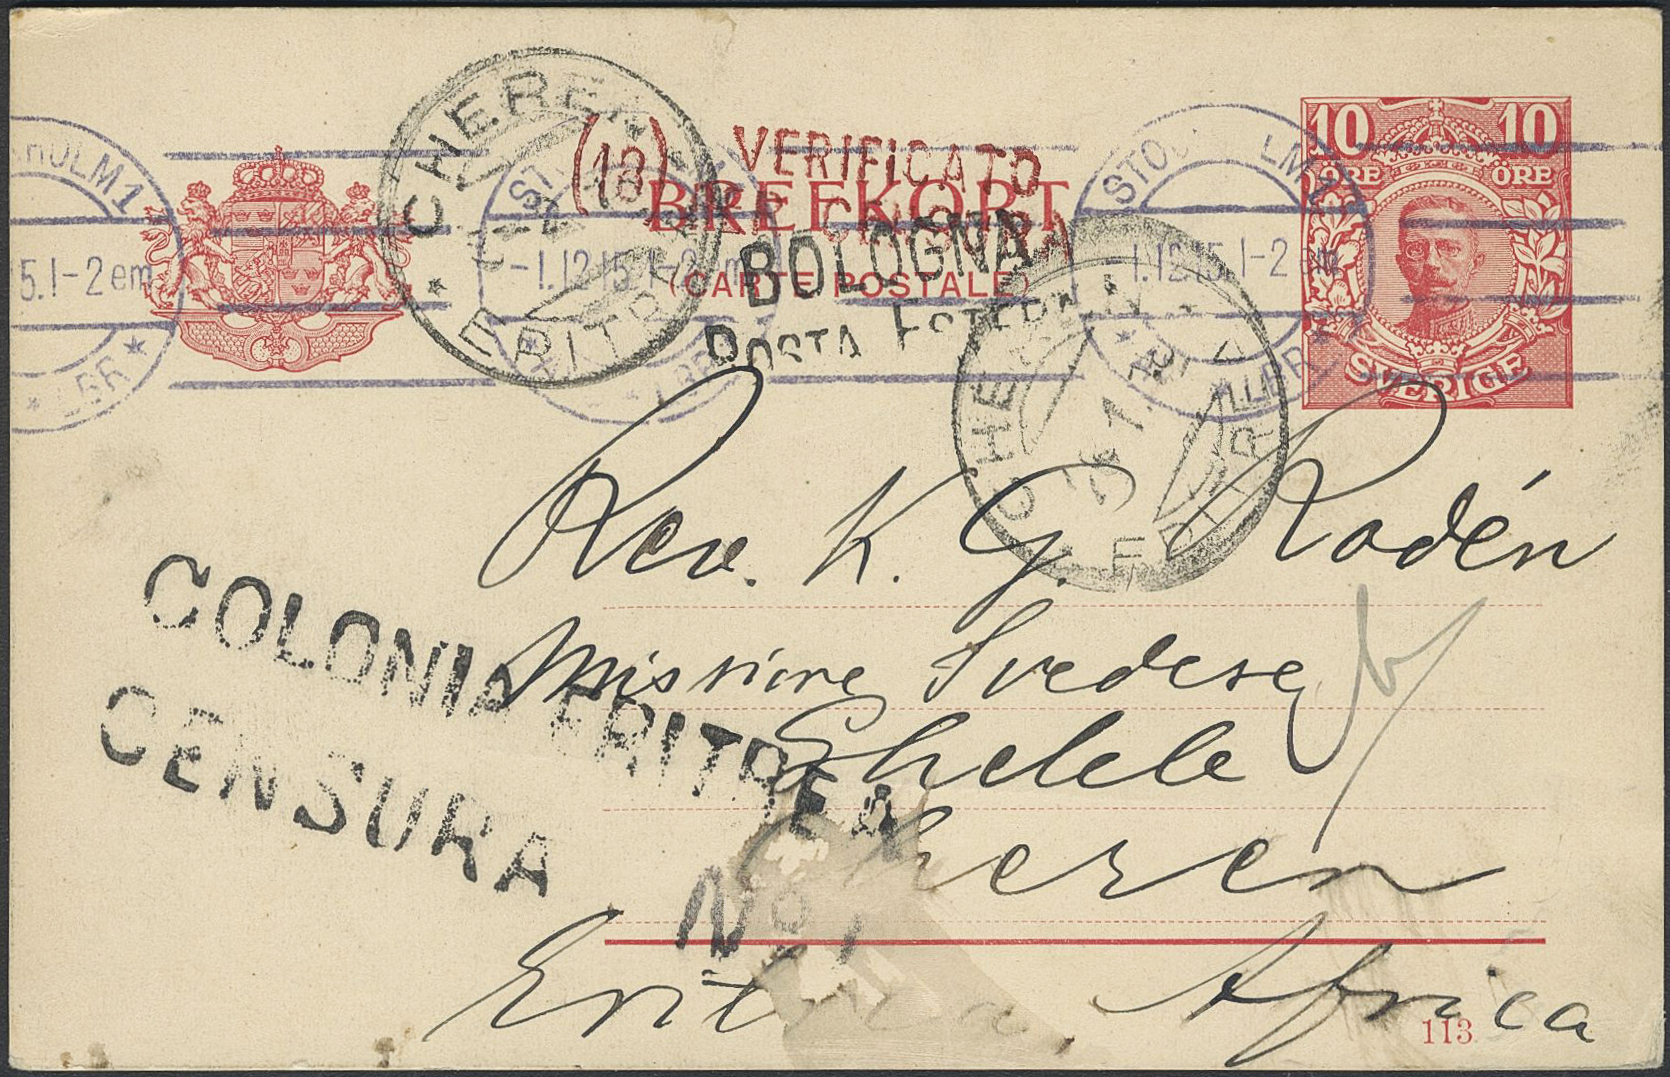 10 10
ÖRE ÖRE
SVERIGE
BREFKORT
(CARTE POSTALE)
(13) VERIFICATO
CENSURA
BOLOGNA
POSTA ESTERA
CHEREN
ERITREA
CHEREN
ERITREA
STOCKHOLM 1
-1.12.15.1-2 em
* AVG. LBR *
STOCKHOLM 1
1.12.15.1-2 em
LBR *
HOLM 1
5.1-2 em
* LBR *
Rev. K. G. Rodén
Missione Svedese
Ghelele
Cheren
Eritrea, Africa
COLONIA ERITREA
CENSURA
No 1
113